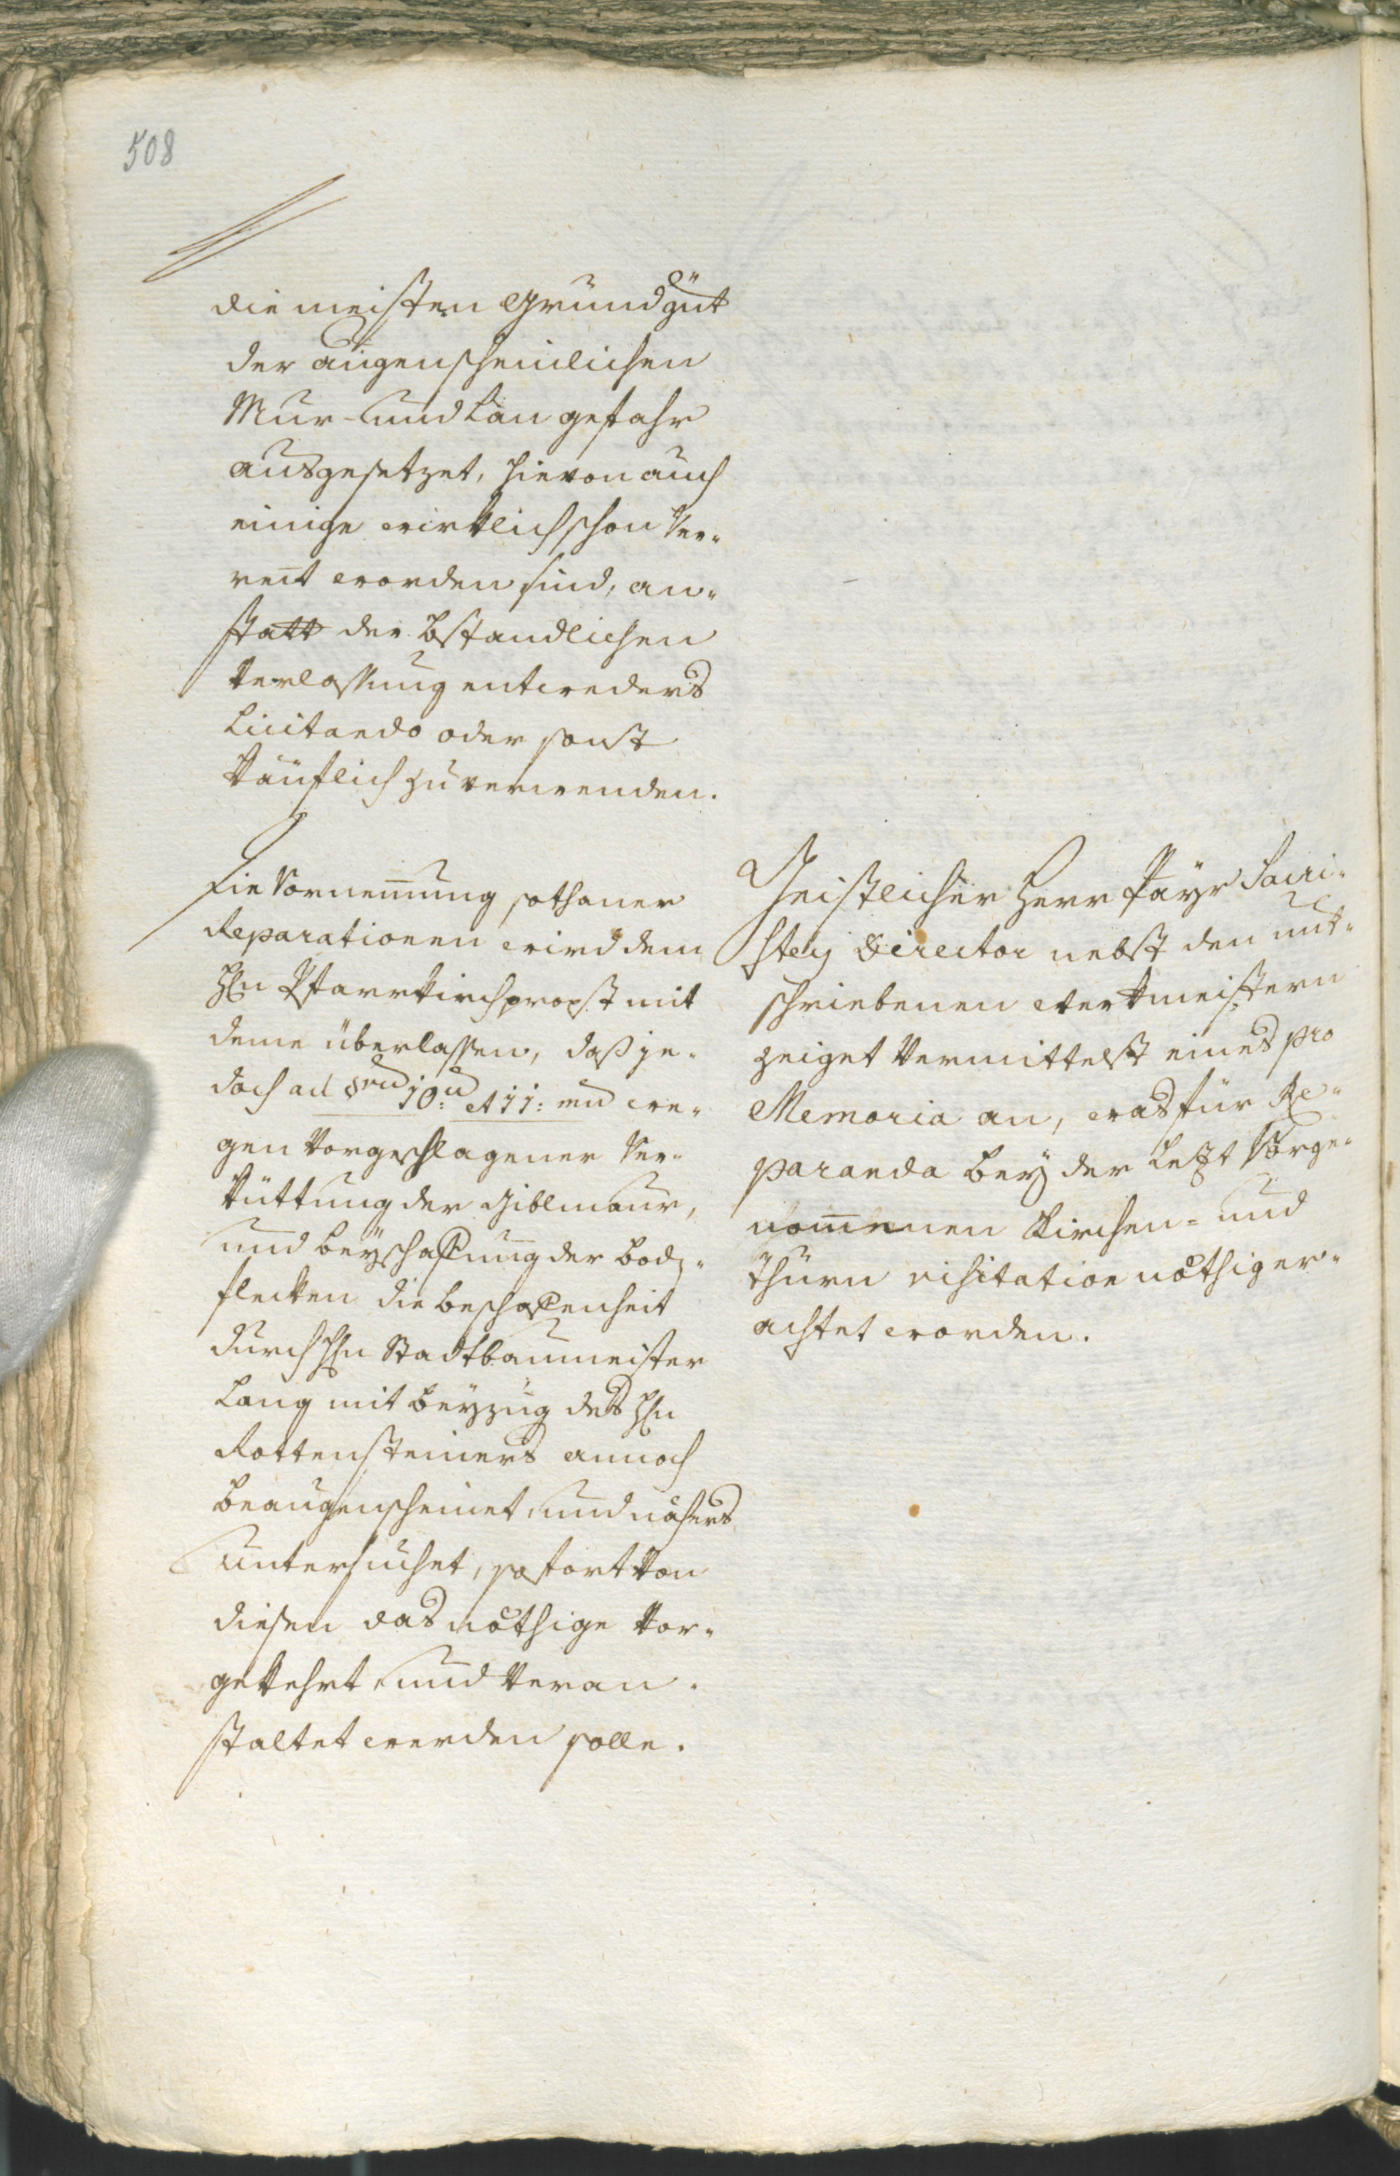 508
die meisten Grundgüt
der augenscheinlichen
Mur- und Lan gefahr
ausgesetzet, hievon auch
einige wirklich schon ver-
worden sind, an-
statt der bstandlichen
verlassung entweders
Licitando oder sonst
käuflich zu verwenden.
Die Vornemung sothaner
Reparationen wird dem
Hln Pfarrkirchpropst mit
deme überlassen, daß je-
doch ad 8vum 10: et 11: mum we-
gen vorgeschlagener Ver-
küttung der Giblmaur,
und beyschaffung der bod-
flecken die beschaffenheit
durch Hln Stadtbaumeister
Lang mit beyzug des Hln
Rottensteiners annoch
beaugenscheinet, und nähers
untersuchet, sofort von
diesen das nöthige vor-
gekehrt, und veran-
staltet werden solle.
Geistlicher Herr Payr Sacri-
stey Director nebst den unt-
schriebenen Werkmeistern
zeiget vermittelst eines pro
Memoria an, was für Re-
paranda bey der letzt vorge-
nommenen Kirchen- und
Thurn visitation nöthig er-
achtet worden.